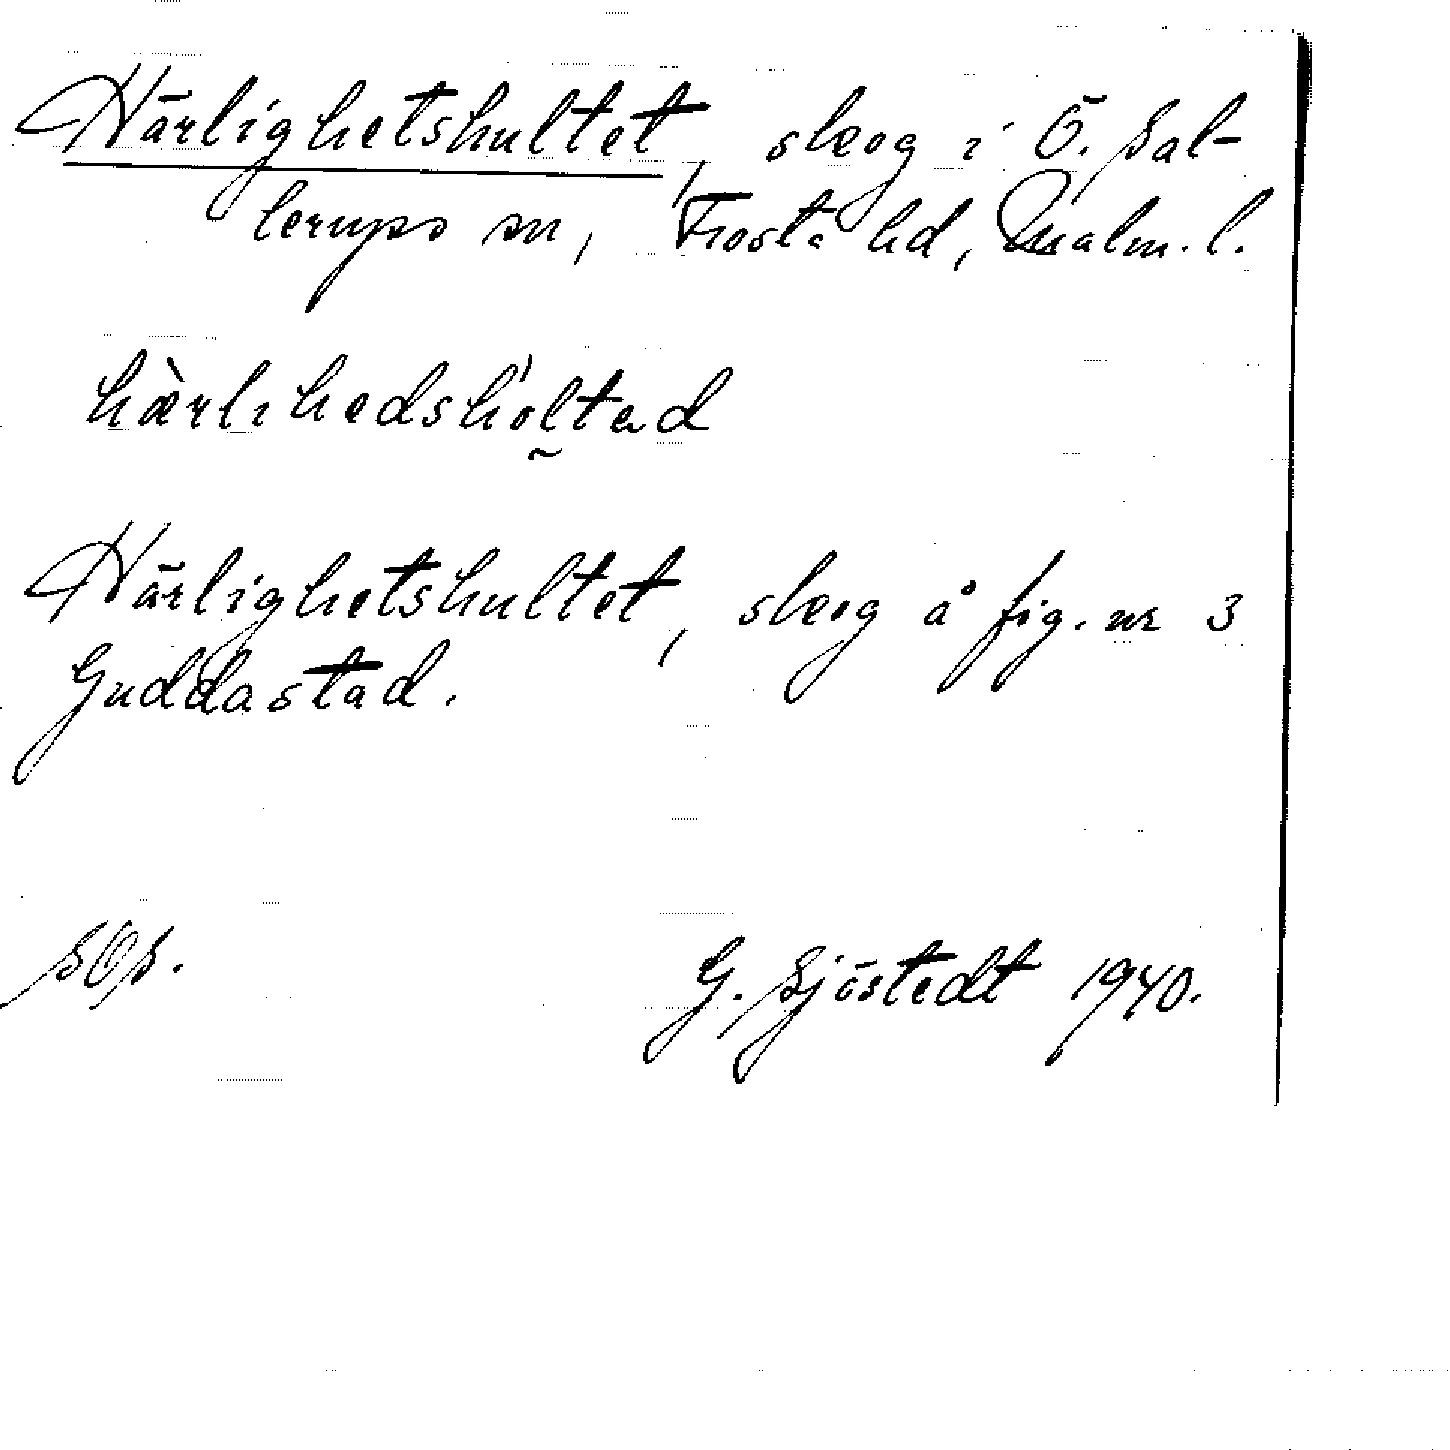 Härlighetshultet, skog i Ö. Sal-
lerups sn, Frosta hd, Malm. l.
hæ̀rlihedshól̰tad
Härlighetshultet, skog å fig. nr 3
Guddastad.
SOS.
G. Sjöstedt 1940.